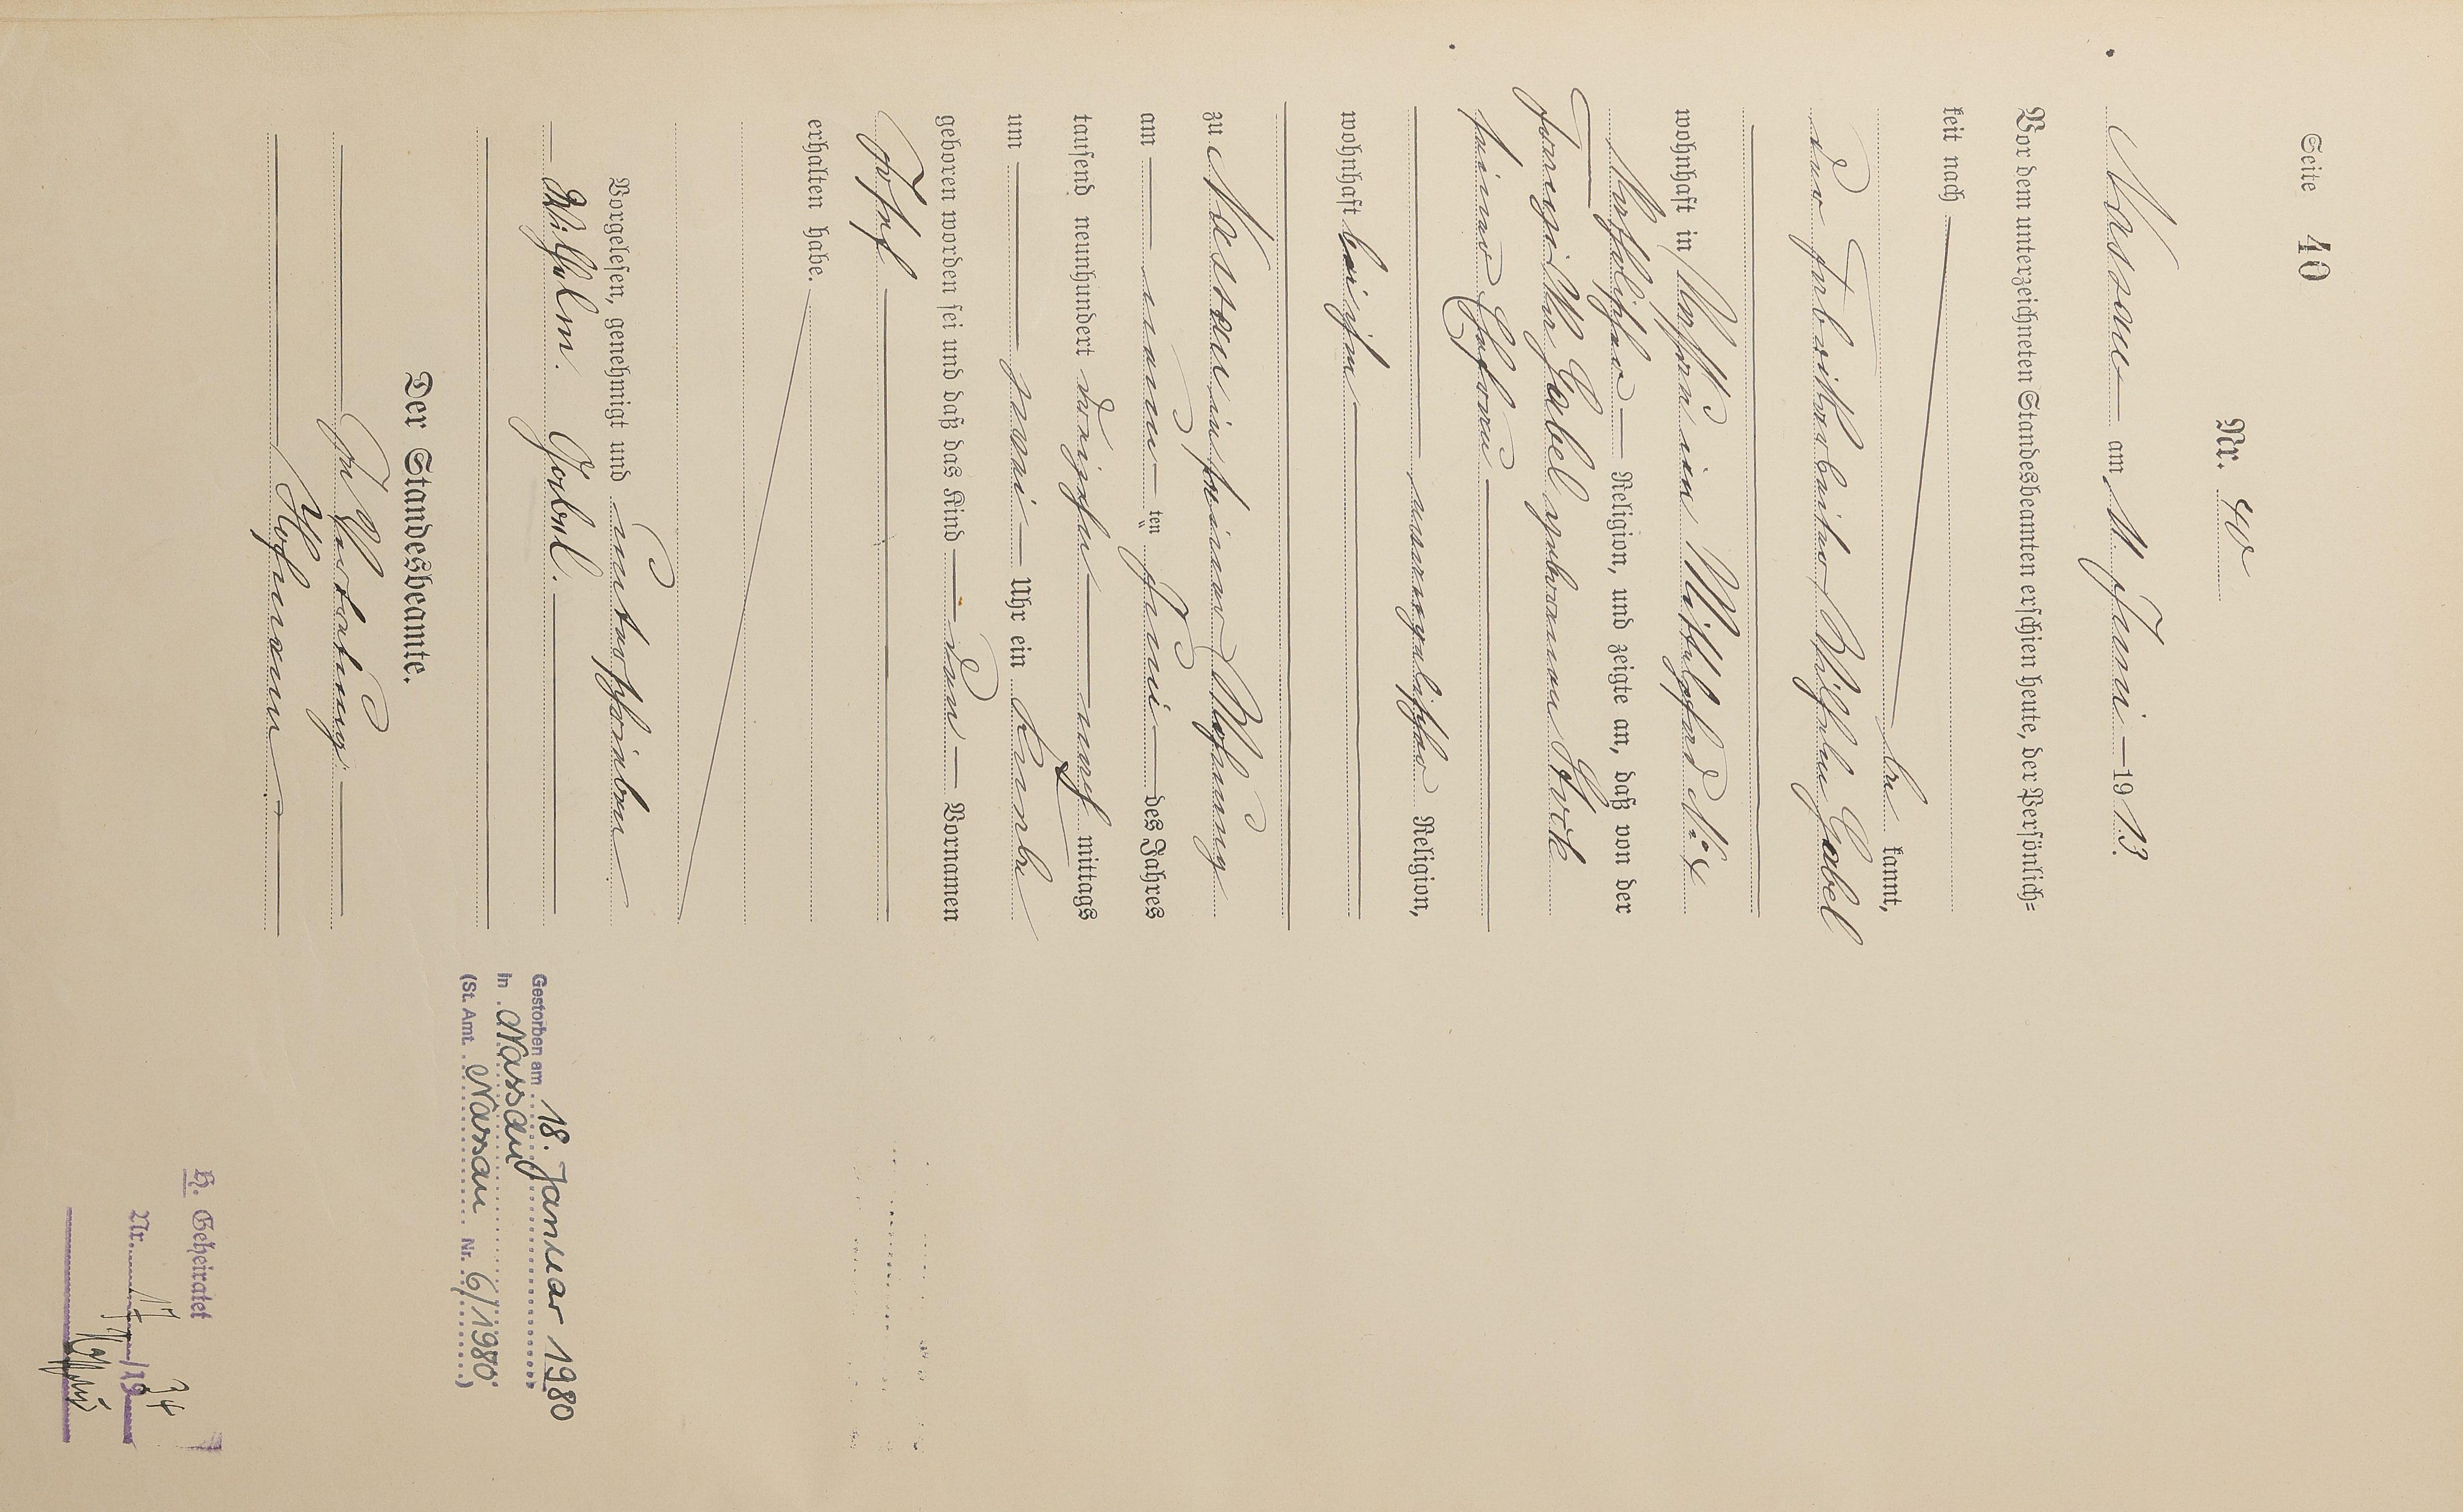 Seite 40
Nr. 40
Nassau am 11. Juni 1913.
Vor dem unterzeichneten Standesbeamten erschien heute, der Persönlich-
keit nach
be kannt,
der Fabrikarbeiter Wilhelm Gabel
wohnhaft in Nassau im Mittelpfad No 4
katholischer Religion, und zeigte an, daß von der
Gabel geborenen Stock
seiner Ehefrau
evangelischer Religion,
wohnhaft bei ihm
zu Nassau in seiner Wohnung
am neunten Juni des Jahres
tausend neunhundert dreizehn nach mittags
um zwei Uhr ein Knabe
geboren worden sei und daß das Kind den Vornamen
Josef
erhalten habe.
Vorgelesen, genehmigt und unterschrieben
Wilhelm Gabel.
Der Standesbeamte.
In Vertretung
Hofmann
Gestorben am 18. Januar 1980
in Nassau
(St. Amt Nassau Nr. 6/1980)
H. Geheiratet
Nr. 17/1934